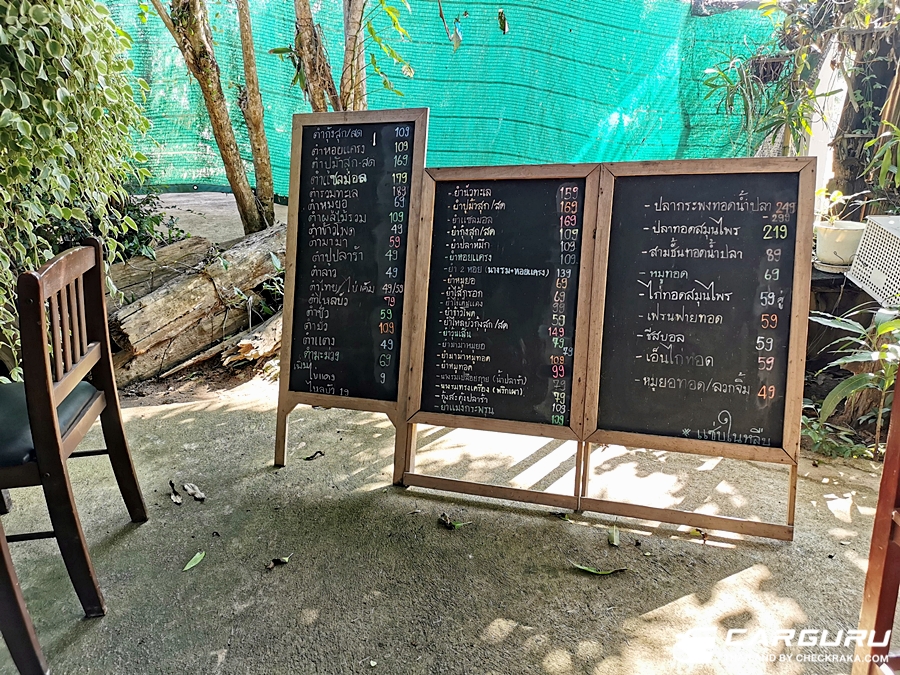 ตำกุ้งสุก/สด 109
ตำหอยแครง 109
ตำปูม้าสุก-สด 169
ตำแซลม่อล 179
ตำรวมทะเล
ตำหมูยอ 69
ตำผลไม้รวม 109
ตำข้าวโพด 49
ตำมาม่า 59
ตำปูปลาร้า 49
ตำลาว 49
ตำไทย/ไข่เค็ม 49/59
ตำไหลบัว 79
ตำซั่ว 59
ตำถั่ว 109
ตำแตง 49
ตำมะม่วง 69
ไข่แดง 9
- ยำรวมทะเล 159
- ยำปูม้าสุก/สด 169
- ยำแซลมอล 169
- ยำกุ้งสุก/สด 109
- ยำปลาหมึก 109
- ยำหอยแครง 109
- ยำ 2 หอย (นางรม+หอยแครง) 139
- ยำหมูยอ 69
- ยำไส้กรอก 69
- ยำไข่แดง 99
- ยำข้าวโพด 59
- ยำไหลบัวกุ้งสุก/สด 149
- ยำวุ้นเส้น 79
- ยำมาม่าหมูยอ 79
- ยำมาม่าหมูทอด 109
- ยำหมูทอด 99
- แหนมเปลือยกาย (น้ำปลาร้า) 79
- แหนมทรงเครื่อง (พริกเผา) 79
- กุ้งสะดุ้งสด 109
- ยำแมงกะพรุน 109
- ปลากระพงทอดน้ำปลา 249 299
- ปลาทอดสมุนไพร 219
- สามชั้นทอดน้ำปลา 89
- หมูทอด 69
- ไก่ทอดสมุนไพร 59
- เฟรนฟายทอด 59
- ชีสบอล 59
- เอ็นไก่ทอด 59
- หมูยอทอด/ลวกจิ้ม 49
* แซ่บในหลืบ
CARGURU
BY CHECKRAKA.COM